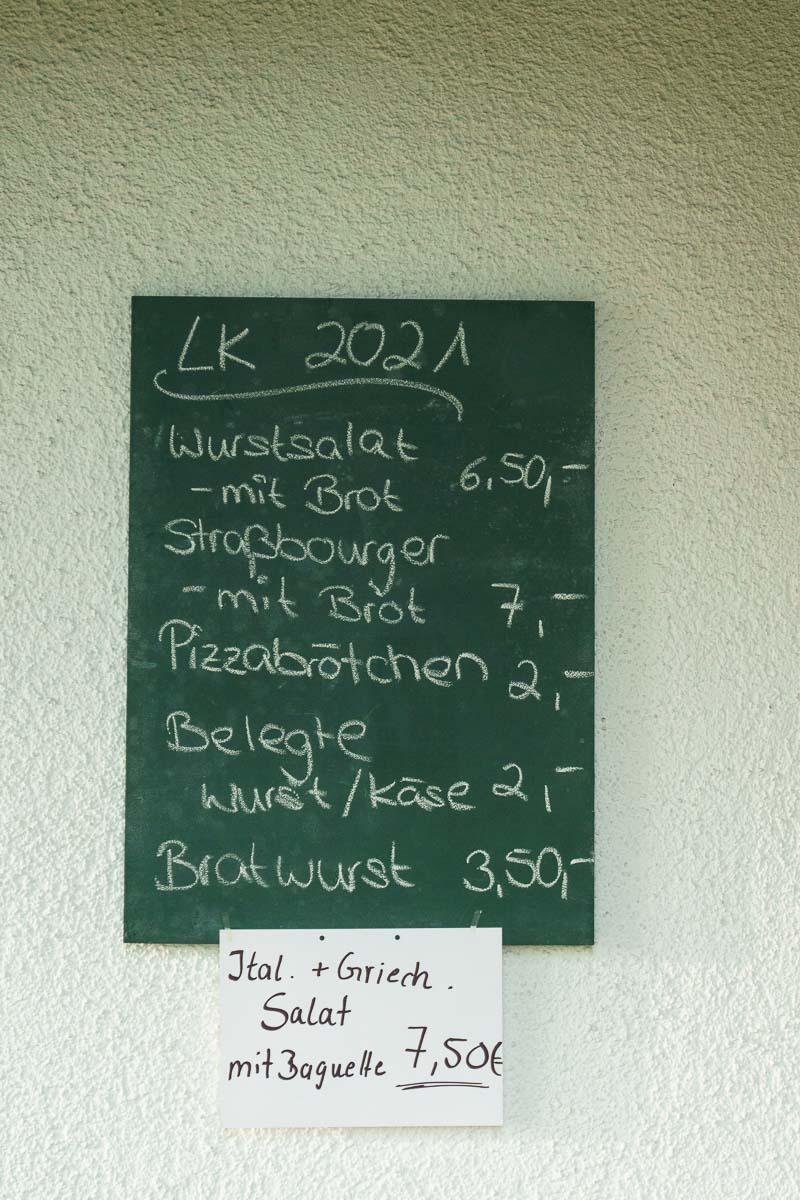 LK 2021
Wurstsalat
- mit Brot 6,50,-
Straßbourger
- mit Brot 7,-
Pizzabrötchen 2,-
Belegte
Wurst/Käse 2,-
Bratwurst 3,50,-
Ital. + Griech.
Salat
mit Baguette 7,50€